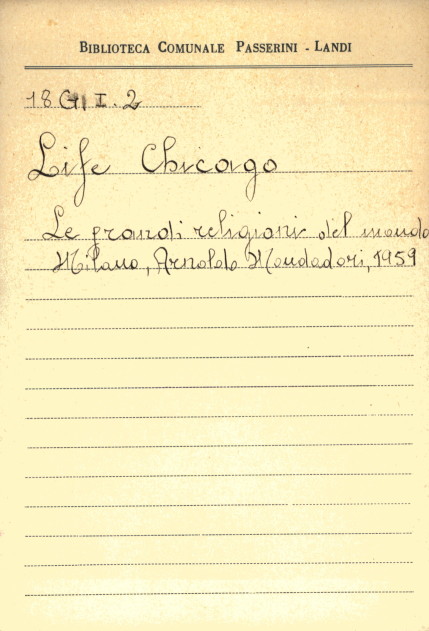 BIBLIOTECA COMUNALE PASSERINI - LANDI
18 G I. 2
Life Chicago
Le grandi religioni del mondo
Milano, Arnoldo Mondadori, 1959